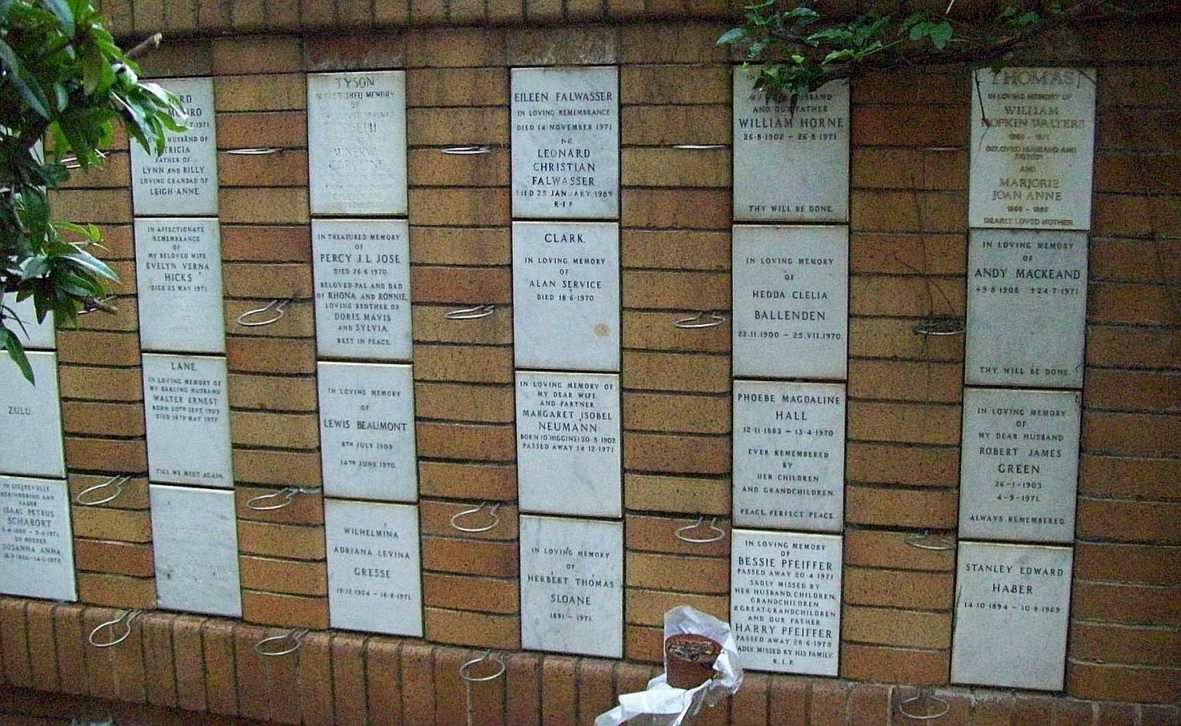 ZULU.
ISAAC PETRUS
SCHABORT
SUSANNA ANNA
HUSBAND OF
FATHER OF
LYNN AND BILLY
LOVING GRANDAD OF
LEIGH-ANNE.
IN AFFECTIONATE
REMEMBRANCE
OF
MY BELOVED WIFE
EVELYN VERNA
HICKS
DIED 25 MAY 1971
LANE.
IN LOVING MEMORY OF
MY DARLING HUSBAND
WALTER ERNEST
TILL WE MEET AGAIN.
TYSON
MEMORY
IN TREASURED MEMORY
OF
PERCY J.L. JOSE
DIED 26.6.1970.
BELOVED PAL AND DAD
OF RHONA AND RONNIE.
LOVING BROTHER OF
DORIS MAVIS
AND SYLVIA.
REST IN PEACE.
IN LOVING MEMORY
OF
LEWIS BEAUMONT
8TH JULY 1909
14TH JUNE 1970.
WILHELMINA
ADRIANA LEVINA
GRESSE
19.12.1904 - 16.8.1971
EILEEN FALWASSER
IN LOVING REMEMBRANCE
DIED 14 NOVEMBER 1971
LEONARD
CHRISTIAN
FALWASSER
DIED 25 JANUARY 1989
R.I.P
CLARK.
IN LOVING MEMORY
OF
ALAN SERVICE
DIED 18.6.1970
IN LOVING MEMORY OF
MY DEAR WIFE
AND PARTNER
MARGARET ISOBEL
NEUMANN
BORN (O HIGGINS) 20.5.1902
PASSED AWAY 14.12.1971
IN LOVING MEMORY
OF
HERBERT THOMAS
SLOANE
1891-1971
HUSBAND
AND OUR FATHER
WILLIAM HORNE
26-8-1902 - 26-8-1971
THY WILL BE DONE.
IN LOVING MEMORY
OF
HEDDA CLELIA
BALLENDEN
22.11.1900 - 25.VII.1970.
PHOEBE MAGDALINE
HALL
12-11-1883 - 13-4-1970
EVER REMEMBERED
BY
HER CHILDREN
AND GRANDCHILDREN.
PEACE, PERFECT PEACE.
IN LOVING MEMORY
OF
BESSIE PFEIFFER
PASSED AWAY 20-4-1971
SADLY MISSED BY
HER HUSBAND, CHILDREN,
GRANDCHILDREN
& GREAT-GRANDCHILDREN
AND OUR FATHER
HARRY PFEIFFER
PASSED AWAY
SADLY MISSED BY HIS FAMILY.
R.I.P.
THOMAS
IN LOVING MEMORY OF
WILLIAM
HOPKIN WALTERS
BELOVED HUSBAND AND
AND
MARJORIE
JOAN ANNE
DEARLY LOVED MOTHER
IN LOVING MEMORY
OF
ANDY MACKEAND
THY WILL BE DONE.
IN LOVING MEMORY
OF
MY DEAR HUSBAND
ROBERT JAMES
GREEN
26-1-1903
4-9-1971.
ALWAYS REMEMBERED.
STANLEY EDWARD
HABER
14-10-1894 - 10-8-1969